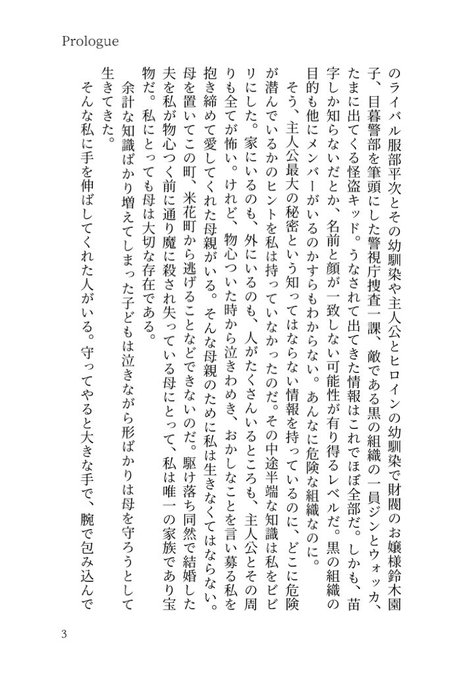 Prologue
のライバル服部平次とその幼馴染や主人公とヒロインの幼馴染で財閥のお嬢様鈴木園
子、目暮警部を筆頭にした警視庁捜査一課、敵である黒の組織の一員ジンとウォッカ、
たまに出てくる怪盗キッド。うなされて出てきた情報はこれでほぼ全部だ。しかも、苗
字しか知らないだとか、名前と顔が一致しない可能性が有り得るレベルだ。黒の組織の
目的も他にメンバーがいるのかすらもわからない。あんなに危険な組織なのに。
そう、主人公最大の秘密という知ってはならない情報を持っているのに、どこに危険
が潜んでいるかのヒントを私は持っていなかったのだ。その中途半端な知識は私をビビ
リにした。家にいるのも、外にいるのも、人がたくさんいるところも、主人公とその周
りも全てが怖い。けれど、物心ついた時から泣きわめき、おかしなことを言い募る私を
抱き締めて愛してくれた母親がいる。そんな母親のために私は生きなくてはならない。
母を置いてこの町、米花町から逃げることなどできないのだ。駆け落ち同然で結婚した
夫を私が物心つく前に通り魔に殺され失っている母にとって、私は唯一の家族であり宝
物だ。私にとっても母は大切な存在である。
余計な知識ばかり増えてしまった子どもは泣きながら形ばかりは母を守ろうとして
生きてきた。
そんな私に手を伸ばしてくれた人がいる。守ってやると大きな手で、腕で包み込んで
3